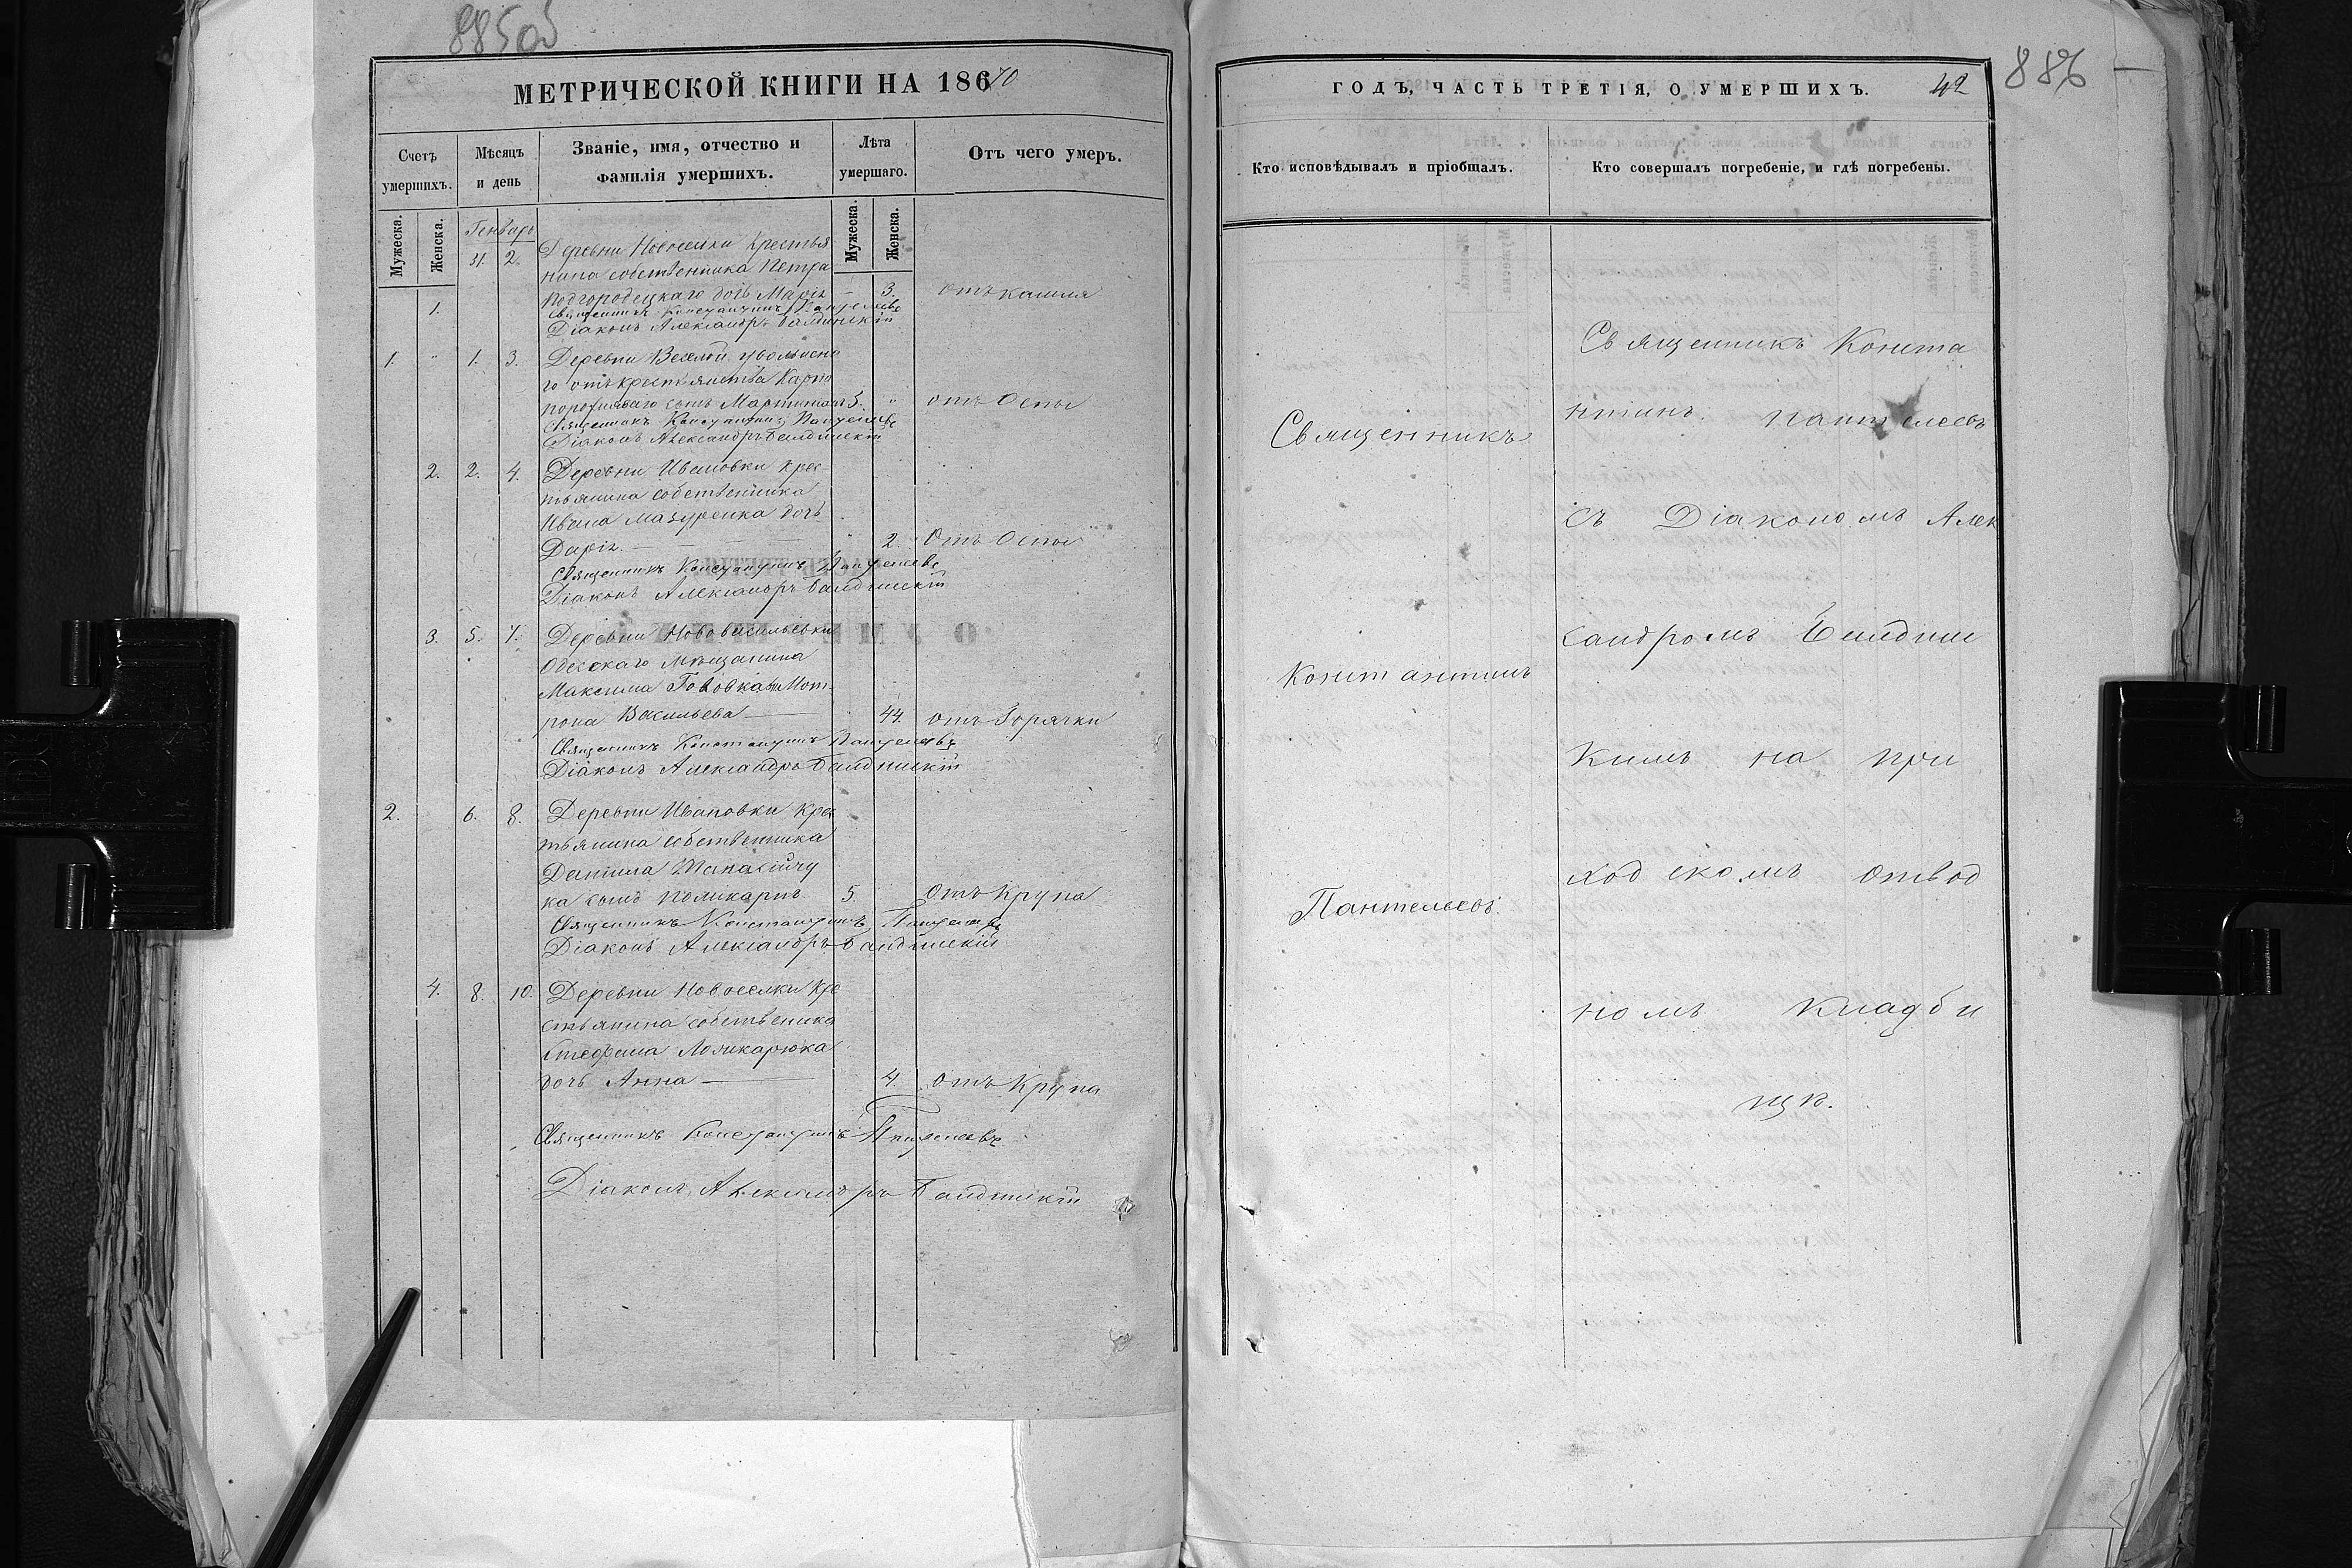 885об
МЕТРИЧЕСКОЙ КНИГИ НА 18670
Счетъ умершихъ.
Мѣсяцъ и день
Званіе, имя, отчество и фамилія умершихъ.
Лѣта умершаго.
Отъ чего умеръ.
Мужеска.
Женска.
Мужеска.
Женска.
Генварь
31. 2. Деревни Новоселки Крестья
нина собственника Петра
1. Подгородецкаго дочь Марія — 3. отъ кашля
Священникъ Константинъ Пантелеевъ
Діаконъ Александръ Балдинскій
1. " 1. 3. Деревни Веселой увольнена
го отъ крестьянства Карпа
сынъ 3. " отъ Оспы
Священникъ Константинъ Пантелеевъ
Діаконъ Александръ Балдинскій
2. 2. 4. Деревни Ивановки Крес-
тьянина собственника
Ивана Мазуренка дочь
Дарія. — " 2. Отъ Оспы
Священникъ Константинъ Пантелеевъ
Діаконъ Александръ Балдинскій
3. 5. 7. Деревни Нововасильевки
Одесскаго Мѣщанина
Максима Мот
рона Васильева — 44. отъ Горячки
Священникъ Константинъ Пантелеевъ
Діаконъ Александръ Балдинскій
2. 6. 8. Деревни Ивановки Крес
тьянина собственника
Даніила
ка сынъ Поликарпъ. 5. Отъ Крупа
Священникъ Константинъ Пантелеевъ
Діаконъ Александръ Балдинскій
4. 8. 10. Деревни Новоселки Кре
стьянина собственика
Стефана Поликарюка
дочь Анна — 4. отъ Крупа
Священникъ Константинъ Пантелеевъ
Діаконъ Александръ Балдинскій
ГОДЪ, ЧАСТЬ ТРЕТІЯ, О УМЕРШИХЪ. 42
886
Кто исповѣдывалъ и пріобщалъ.
Кто совершалъ погребеніе, и гдѣ погребены.
Священникъ
Константинъ
Пантелеевъ.
Священникъ Конста
нтинъ. Пантелеевъ
съ Діакономъ Алек
сандромъ Балдин
кимъ на при
ходскомъ отвод
номъ кладби
щѣ.